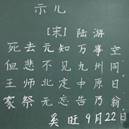 示儿
[宋] 陆游
死去元知万事空
但悲不见九州同
王师北定中原日
家祭无忘告乃翁
奚旺 9月22日